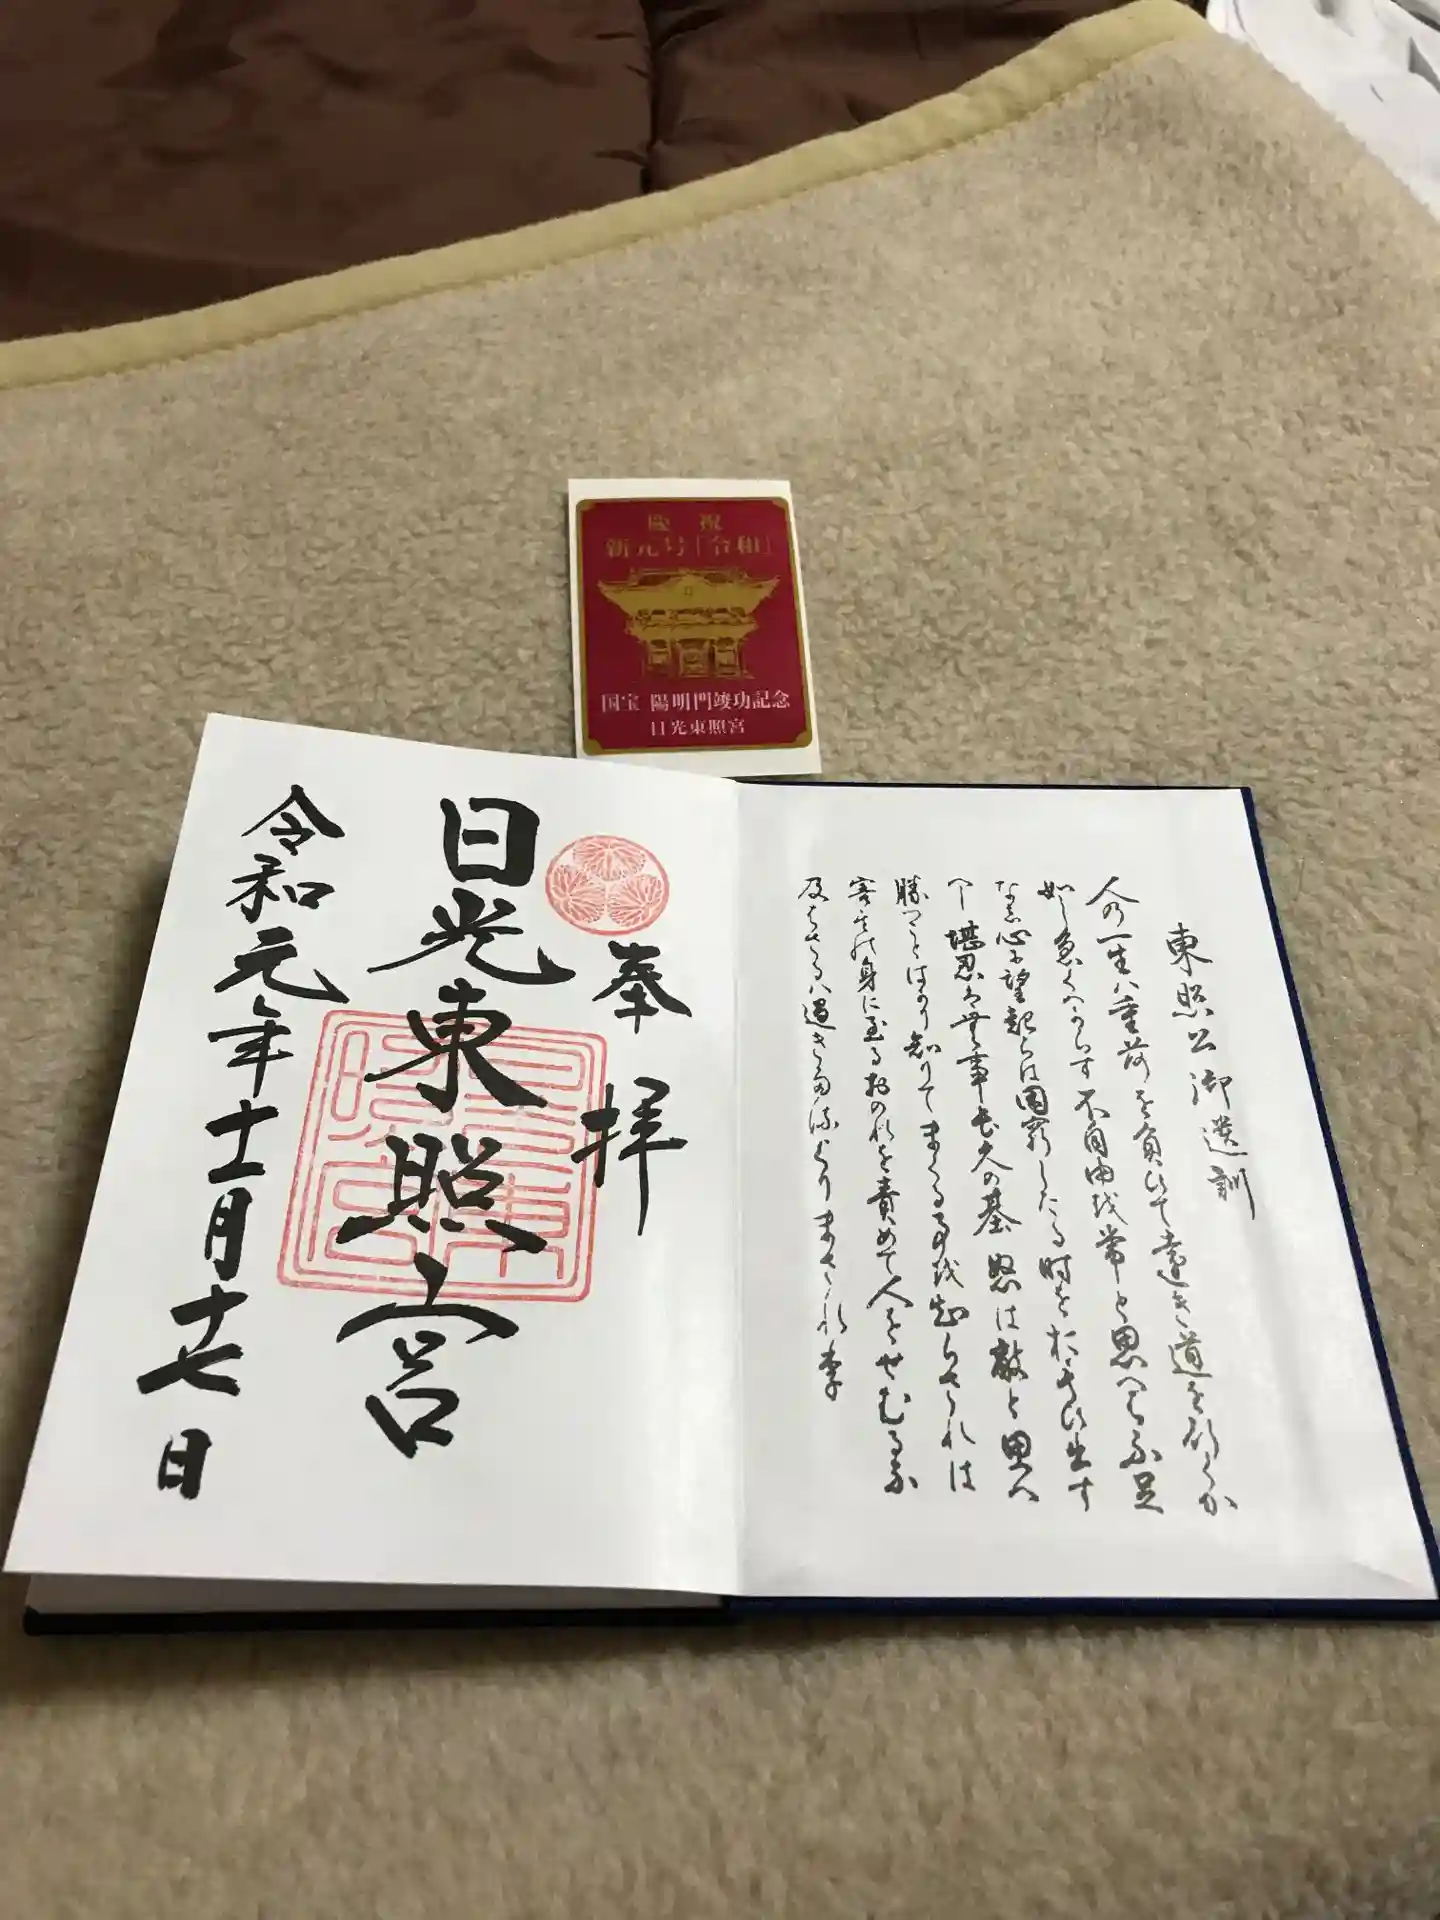 慶祝
新元号「令和」
国宝 陽明門竣功記念
日光東照宮
東照公御遺訓
人の一生ハ重荷を負ひて遠き道を行くか
如し急くへからす不自由を常と思へハ不足
なし心に望起らは困窮したる時を おもひ出す
へし堪忍は無事長久の基怒は敵と思へ
勝つことはかり知りてまくる事を知らされは
害其の身に至るおのれを責めて人をせむるな
及はさるハ過きたるよりまされり
奉拝
日光東照宮
令和元年十一月十七日